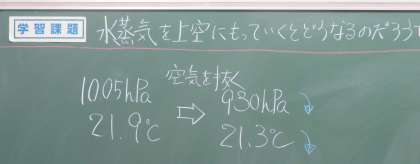 学習課題 水蒸気を上空にもっていくとどうなるのだろうか
空気を抜く
1005hPa ⇨ 930hPa ↓
21.9℃ 21.3℃ ↓